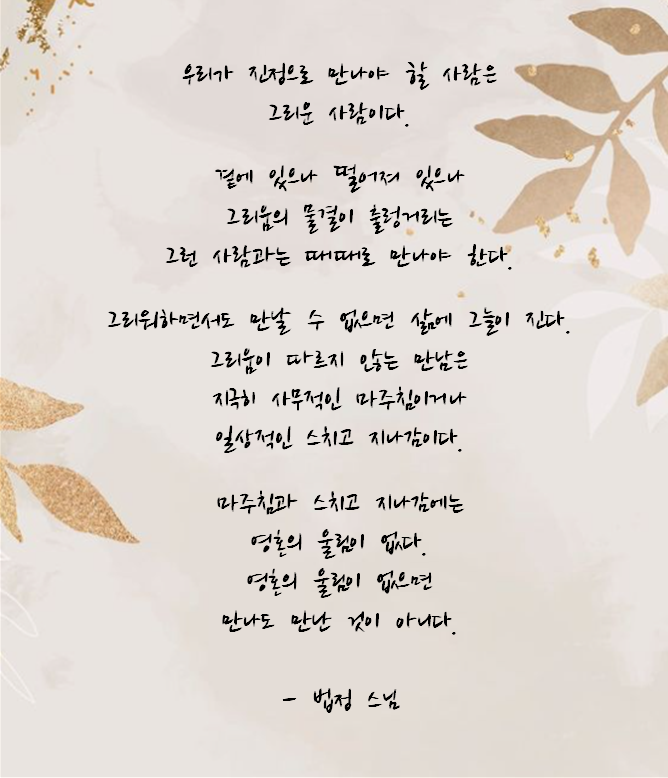 우리가 진정으로 만나야 할 사람은
그리운 사람이다.
곁에 있으나 떨어져 있으나
그리움의 물결이 출렁거리는
그런 사람과는 때때로 만나야 한다.
그리워하면서도 만날 수 없으면 삶에 그늘이 진다.
그리움이 따르지 않는 만남은
지극히 사무적인 마주침이거나
일상적인 스치고 지나감이다.
마주침과 스치고 지나감에는
영혼의 울림이 없다.
영혼의 울림이 없으면
만나도 만난 것이 아니다.
- 법정 스님